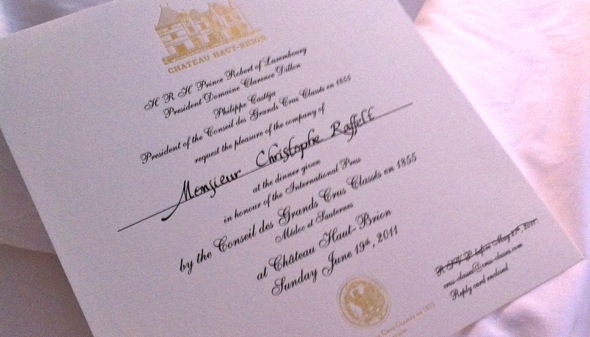 CHATEAU HAUT-BRION
H R H Prince Robert of Luxembourg
President Domaine Clarence Dillon
Philippe Castéja
President of the Conseil des Grands Crus Classés en 1855
request the pleasure of the company of
Monsieur Christophe Raffelt
at the dinner given
in honour of the International Press
by the Conseil des Grands Crus Classés en 1855
Médoc et Sauternes
at Château Haut-Brion
Sunday June 19th, 2011
crus-classes@crus-classes.com
Reply card enclosed
Crus Classés en 1855